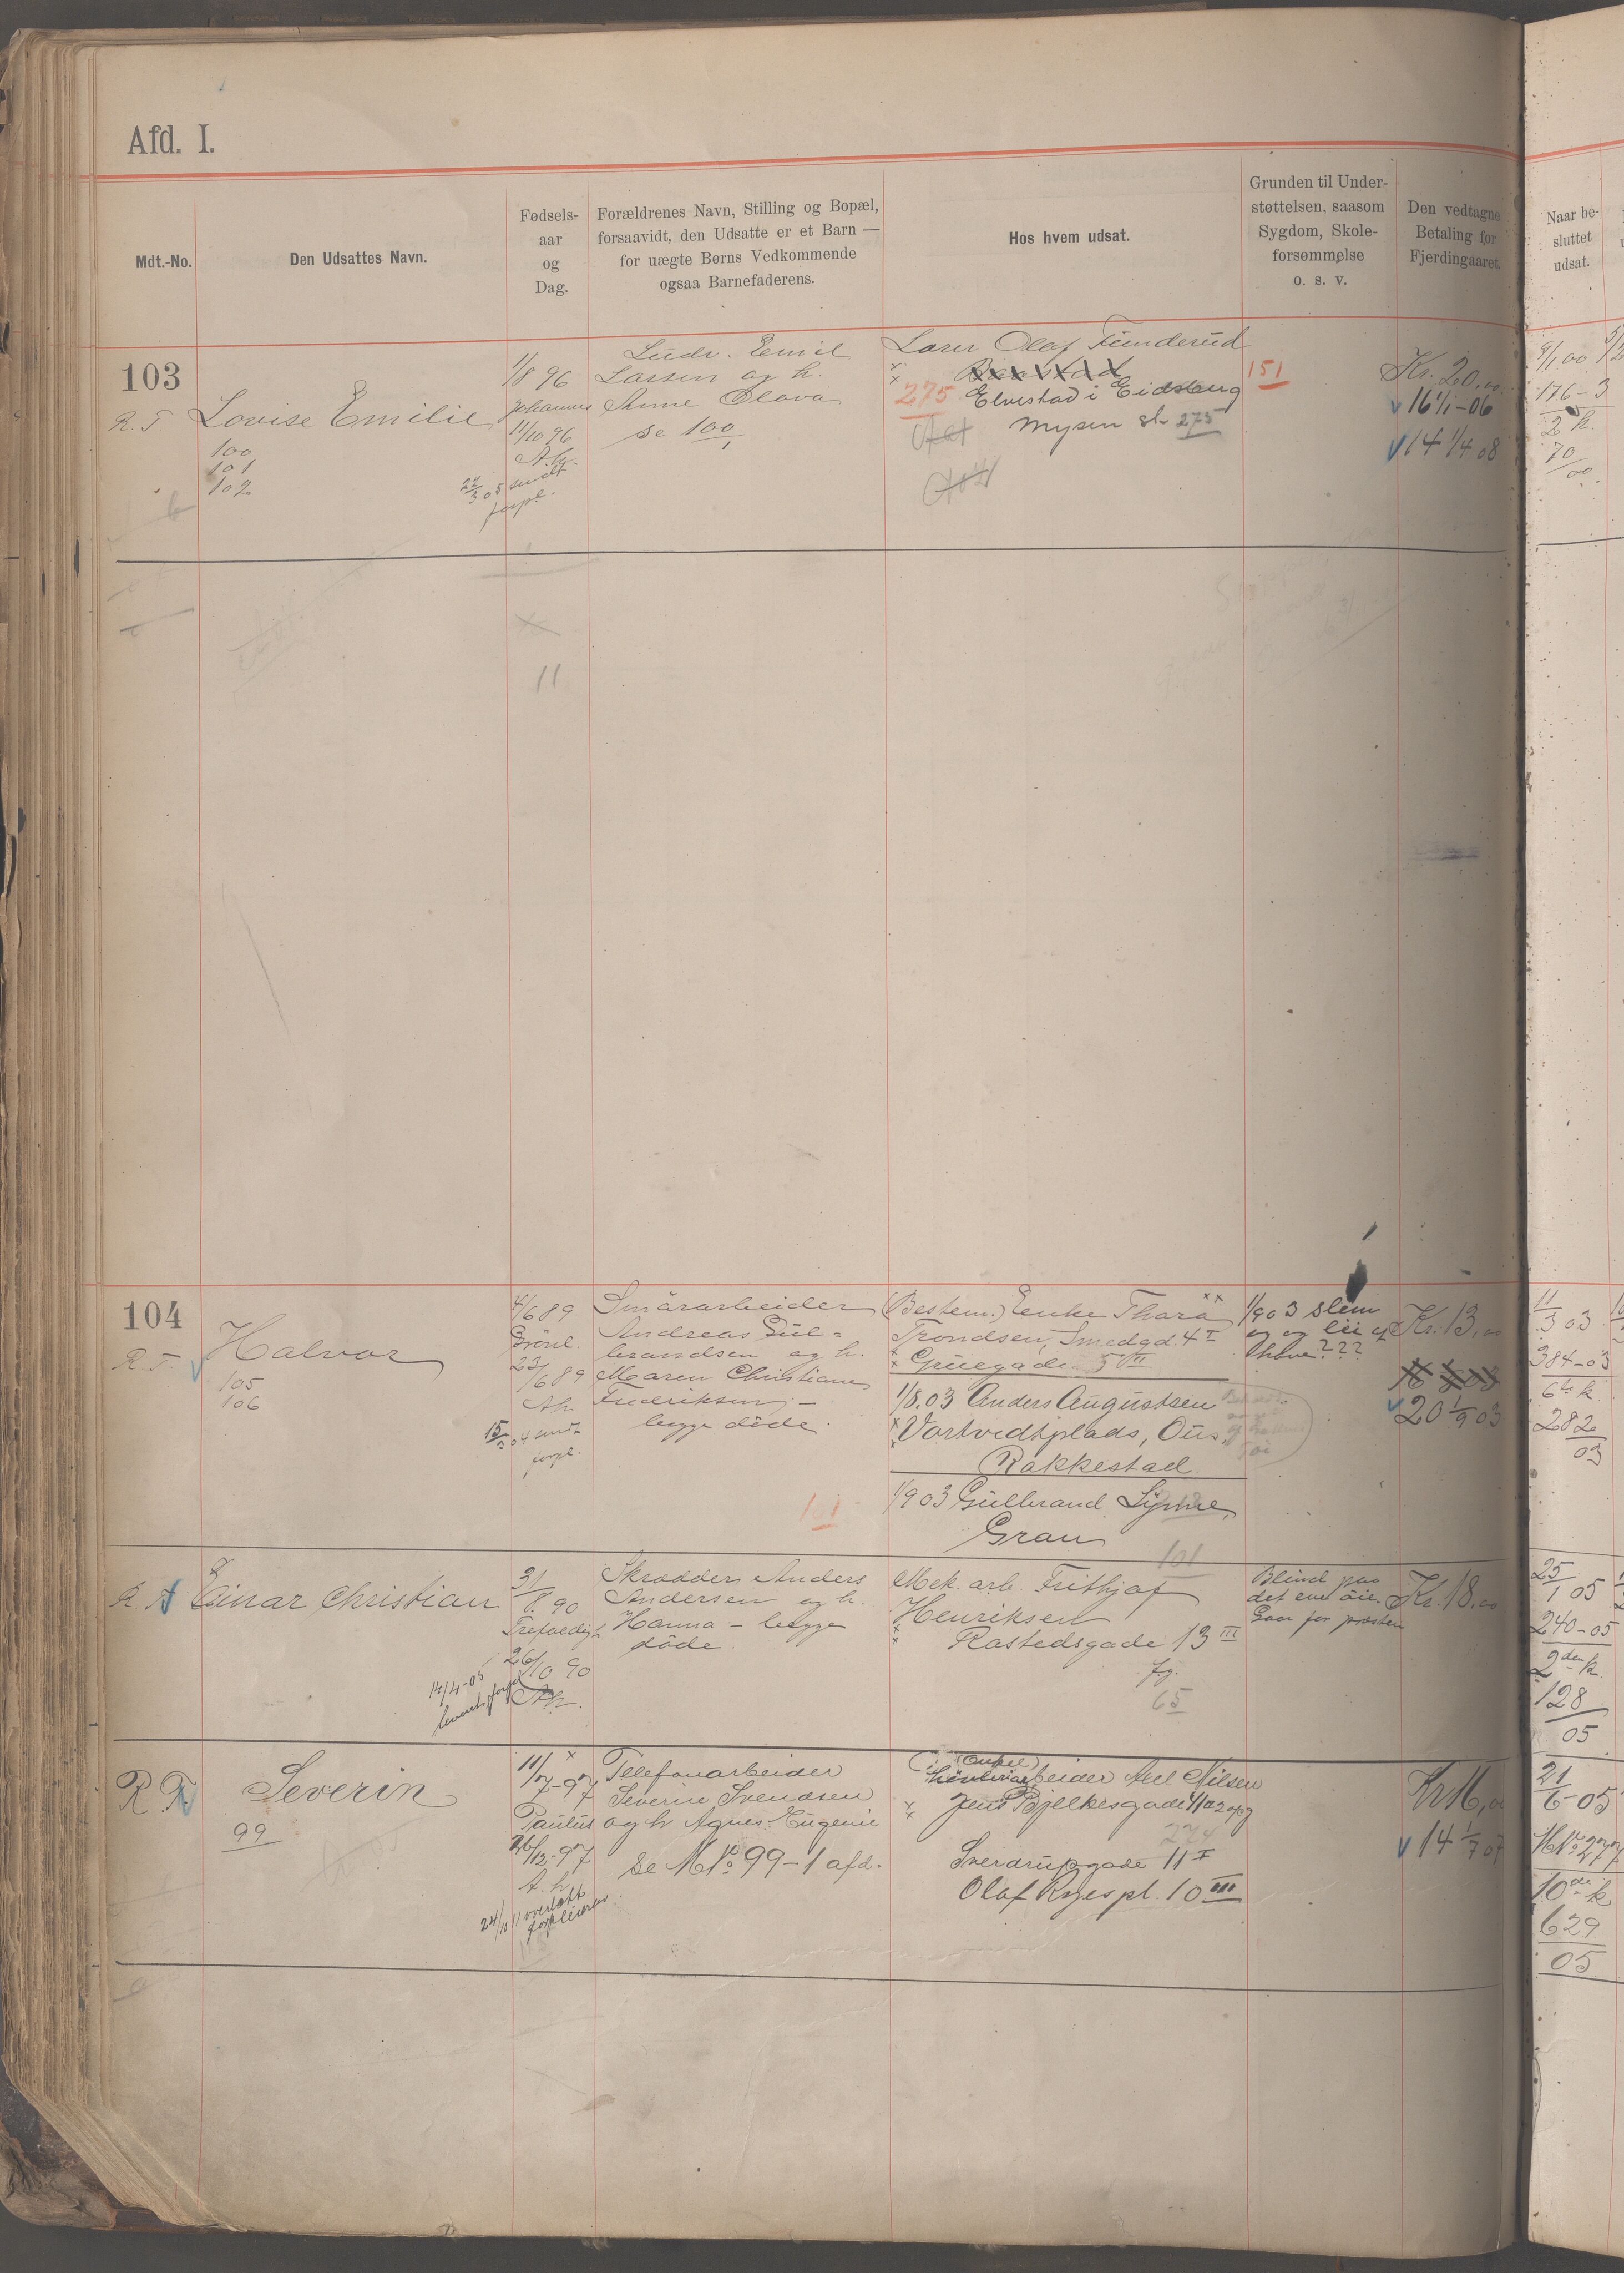 Afd. I.
Mdt.-No.
Den Udsattes Navn.
Fødsels-
aar
og
Dag.
Forældrenes Navn, Stilling og Bopæl,
forsaavidt, den Udsatte er et Barn —
for uægte Børns Vedkommende
ogsaa Barnefaderens.
Hos hvem udsat.
Grunden til Under-
støttelsen, saasom
Sygdom, Skole-
forsømmelse
o. s. v.
Den vedtagne
Betaling for
Fjerdingaaret.
Naar be-
sluttet
udsat.
103
R. T
Lovise Emilie
100
101
102
1/8 96
Johannes
11/10 96
A.k.
22/3 05
forpl.
Ludv. Emil
Larsen og h.
Anne Olava
se 100
Lærer Olaf Funderud
275 Elvestad i Eidsberg
Mysen st. 275
151
Kr. 20,00
16 1/1-06
14 1/4 08
9/1 00
176-3
2 k.
70/00
11
104
R. T.
Halvor
105
106
4/6 89
Grönl.
23/6 89
Ak
15/3 04
forpl.
Smörarbeider
Andreas Gul-
brandsen og h.
Maren Christiane
Fredriksen -
begge döde.
101
(Bestem.) Enke Thora
Trondsen, Smedgd. 4 I
Gruegade 5 VII
1/8.03 Anders Augustsen
Vortvedtplads, Ous,
Rakkestad
1/9 03 Gulbrand Lynne,
Gran
101
1/9 03 slem
Kr. 13,00
20 1/9 03
11/3 03
384-03
6te k.
282/03
R. T
Einar Christian
31/8. 90
Trefoldigh
26/10 90
Ak.
14/4-05
Skrædder Anders
Andersen og h.
Hanna - begge
döde.
Mek. arb. Frithjof
Henriksen
Rastedsgade 13 III
fg.
65
Blind paa
det ene öie.
Gaar for præsten
Kr. 18,00
25/1 05
240-05
2den k.
128/05
R T
Severin
99
11/7-97
Paulus
26/12-97
A.k.
24/10 11
Telefonarbeider
Severin Svendsen
og h Agnes Eugenie
se M No 99-1 afd.
(Onkel)
Axel Nilsen
Jens Bjelkesgade
274
Sverdrupgade 11 I
Olaf Ryespl. 10 III
Kr 16,00
14 1/7 07
21/6-05
M No 277
10de k
629/05